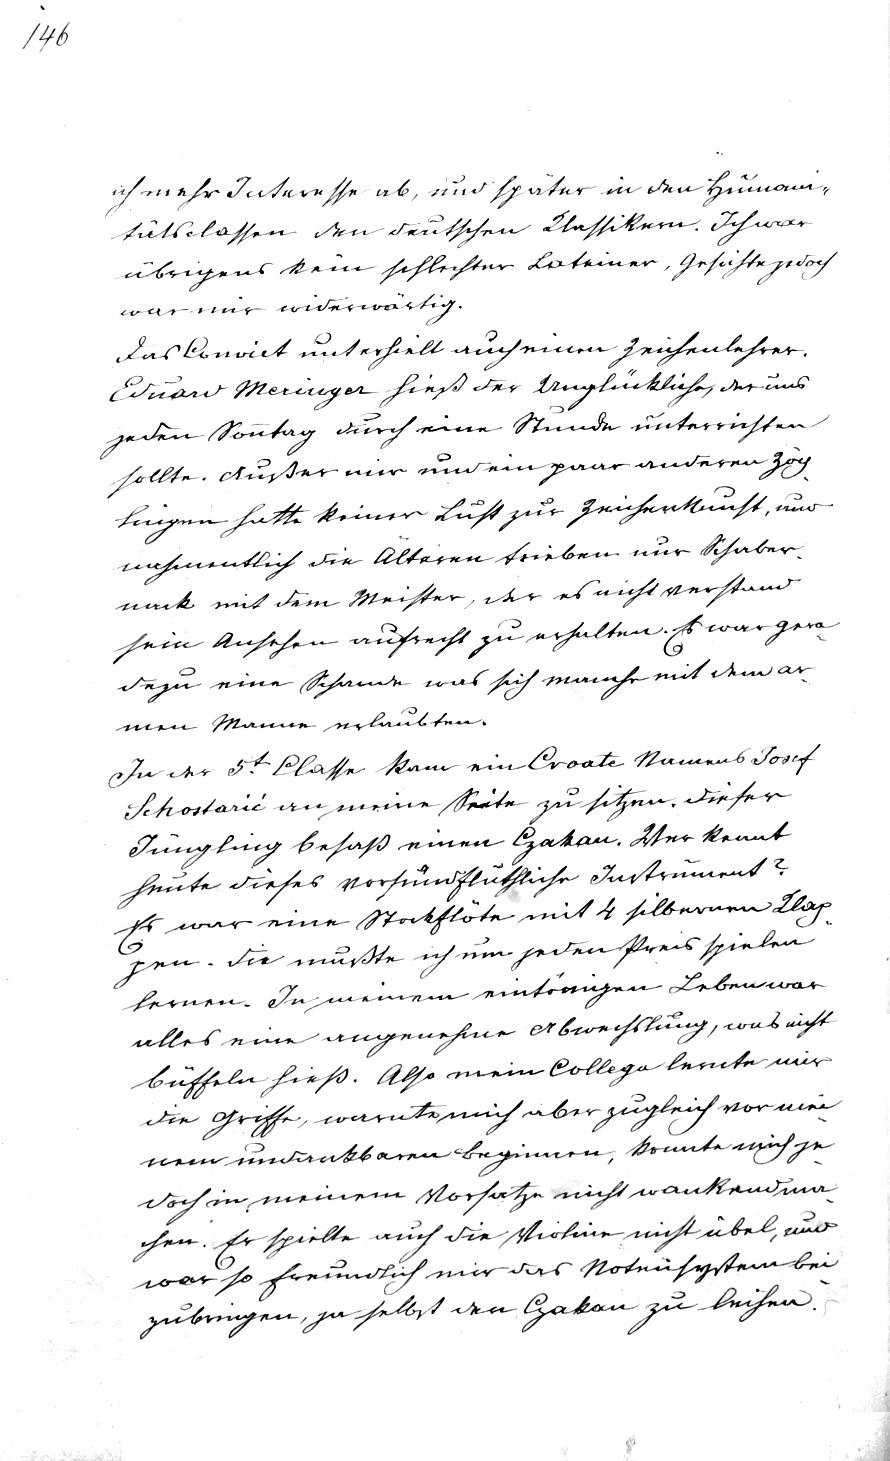 146
ich mehr Interesse ab, und später in den Humani-
tätsclassen den deutschen Klassikern. Ich war
übrigens kein schlechter Lateiner, Geschichte jedoch
war mir widerwärtig.
Das Convict unterhielt auch einen Zeichenlehrer.
Eduard Meringer hieß der Unglückliche, der uns
jeden Sonntag durch eine Stunde unterrichten
sollte. Außer mir und ein paar anderen Zög-
lingen hatte keiner Lust zur Zeichenkunst, und
nahmentlich die Älteren trieben nur Schaber-
nack mit dem Meister, der es nicht verstand
sein Ansehen aufrecht zu erhalten. Es war gera-
dezu eine Schande was sich manche mit dem ar-
men Manne erlaubten.
In der 5t. Classe kam ein Croate Namens Josef
Schostarić an meine Seite zu sitzen. Dieser
Jüngling besaß einen Czakan. Wer kennt
heute dieses vorsündfluthliche Instrument?
Es war eine Stockflöte mit 4 silbernen Klap-
pen. Die mußte ich um jeden Preis spielen
lernen. In meinem eintönigen Leben war
alles eine angenehme Abwechslung, was nicht
büffeln hieß. Also mein Collega lernte mir
die Griffe, warnte mich aber zugleich vor mei-
nem undankbaren Beginnen, konnte mich je-
doch in meinem Vorsatze nicht wankend ma-
chen. Er spielte auch die Violine nicht übel, und
war so freundlich mir das Notensystem bei-
zubringen, ja selbst den Czakan zu leihen.